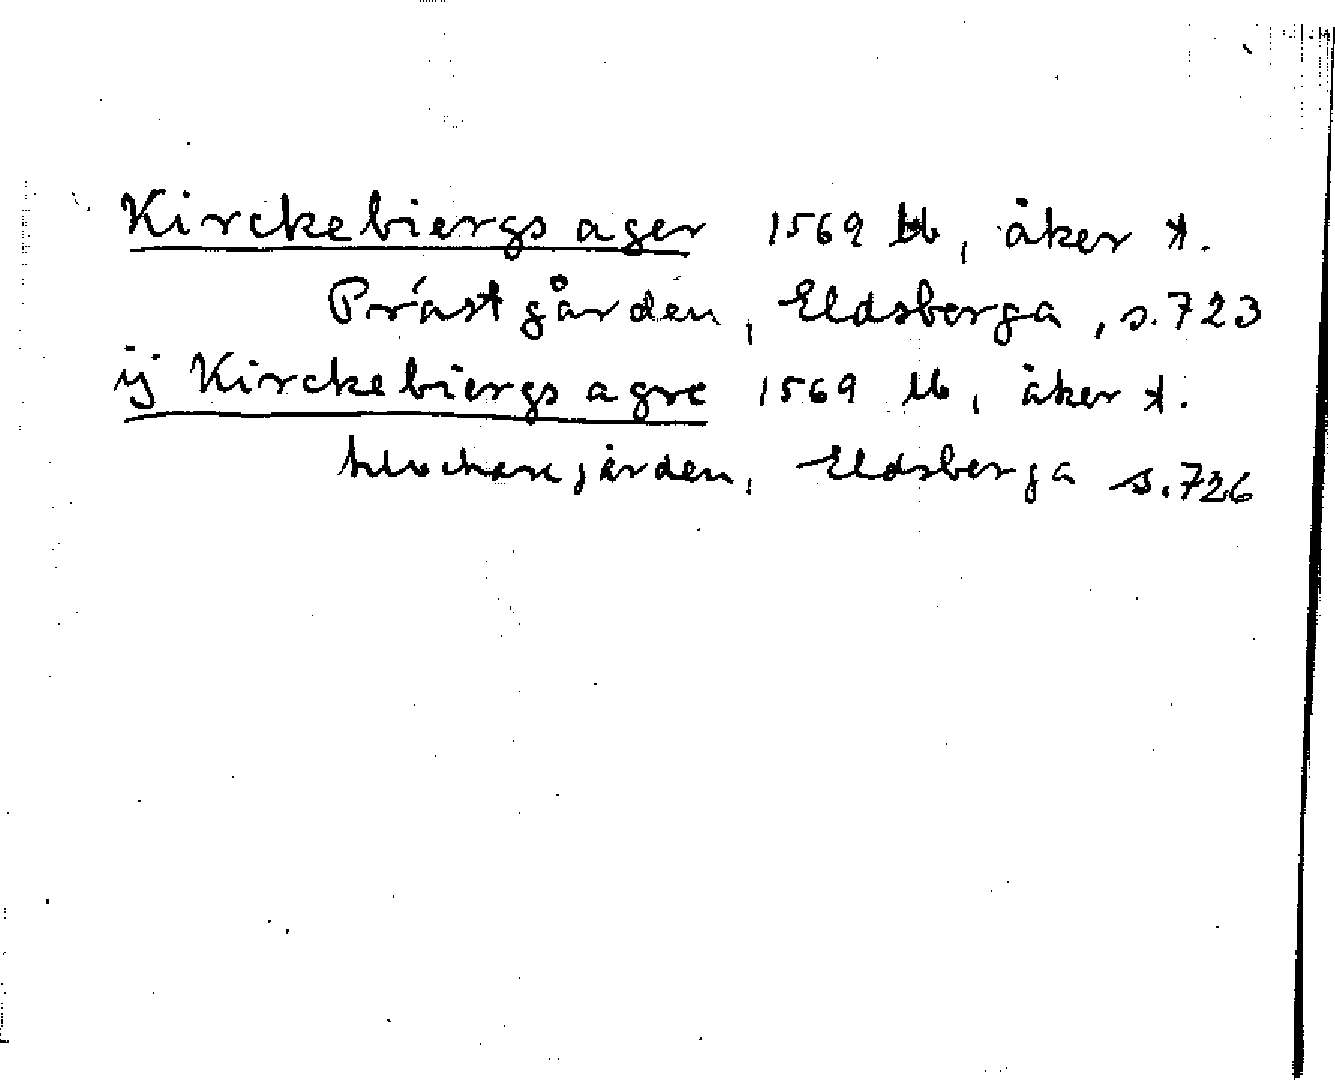 Kirckebiergs ager 1569 Lb, åker t.
Prästgården, Eldsberga, s.723
ij Kirckebiergs agre 1569 Lb, åker t.
klockaregården, Eldsberga s.726